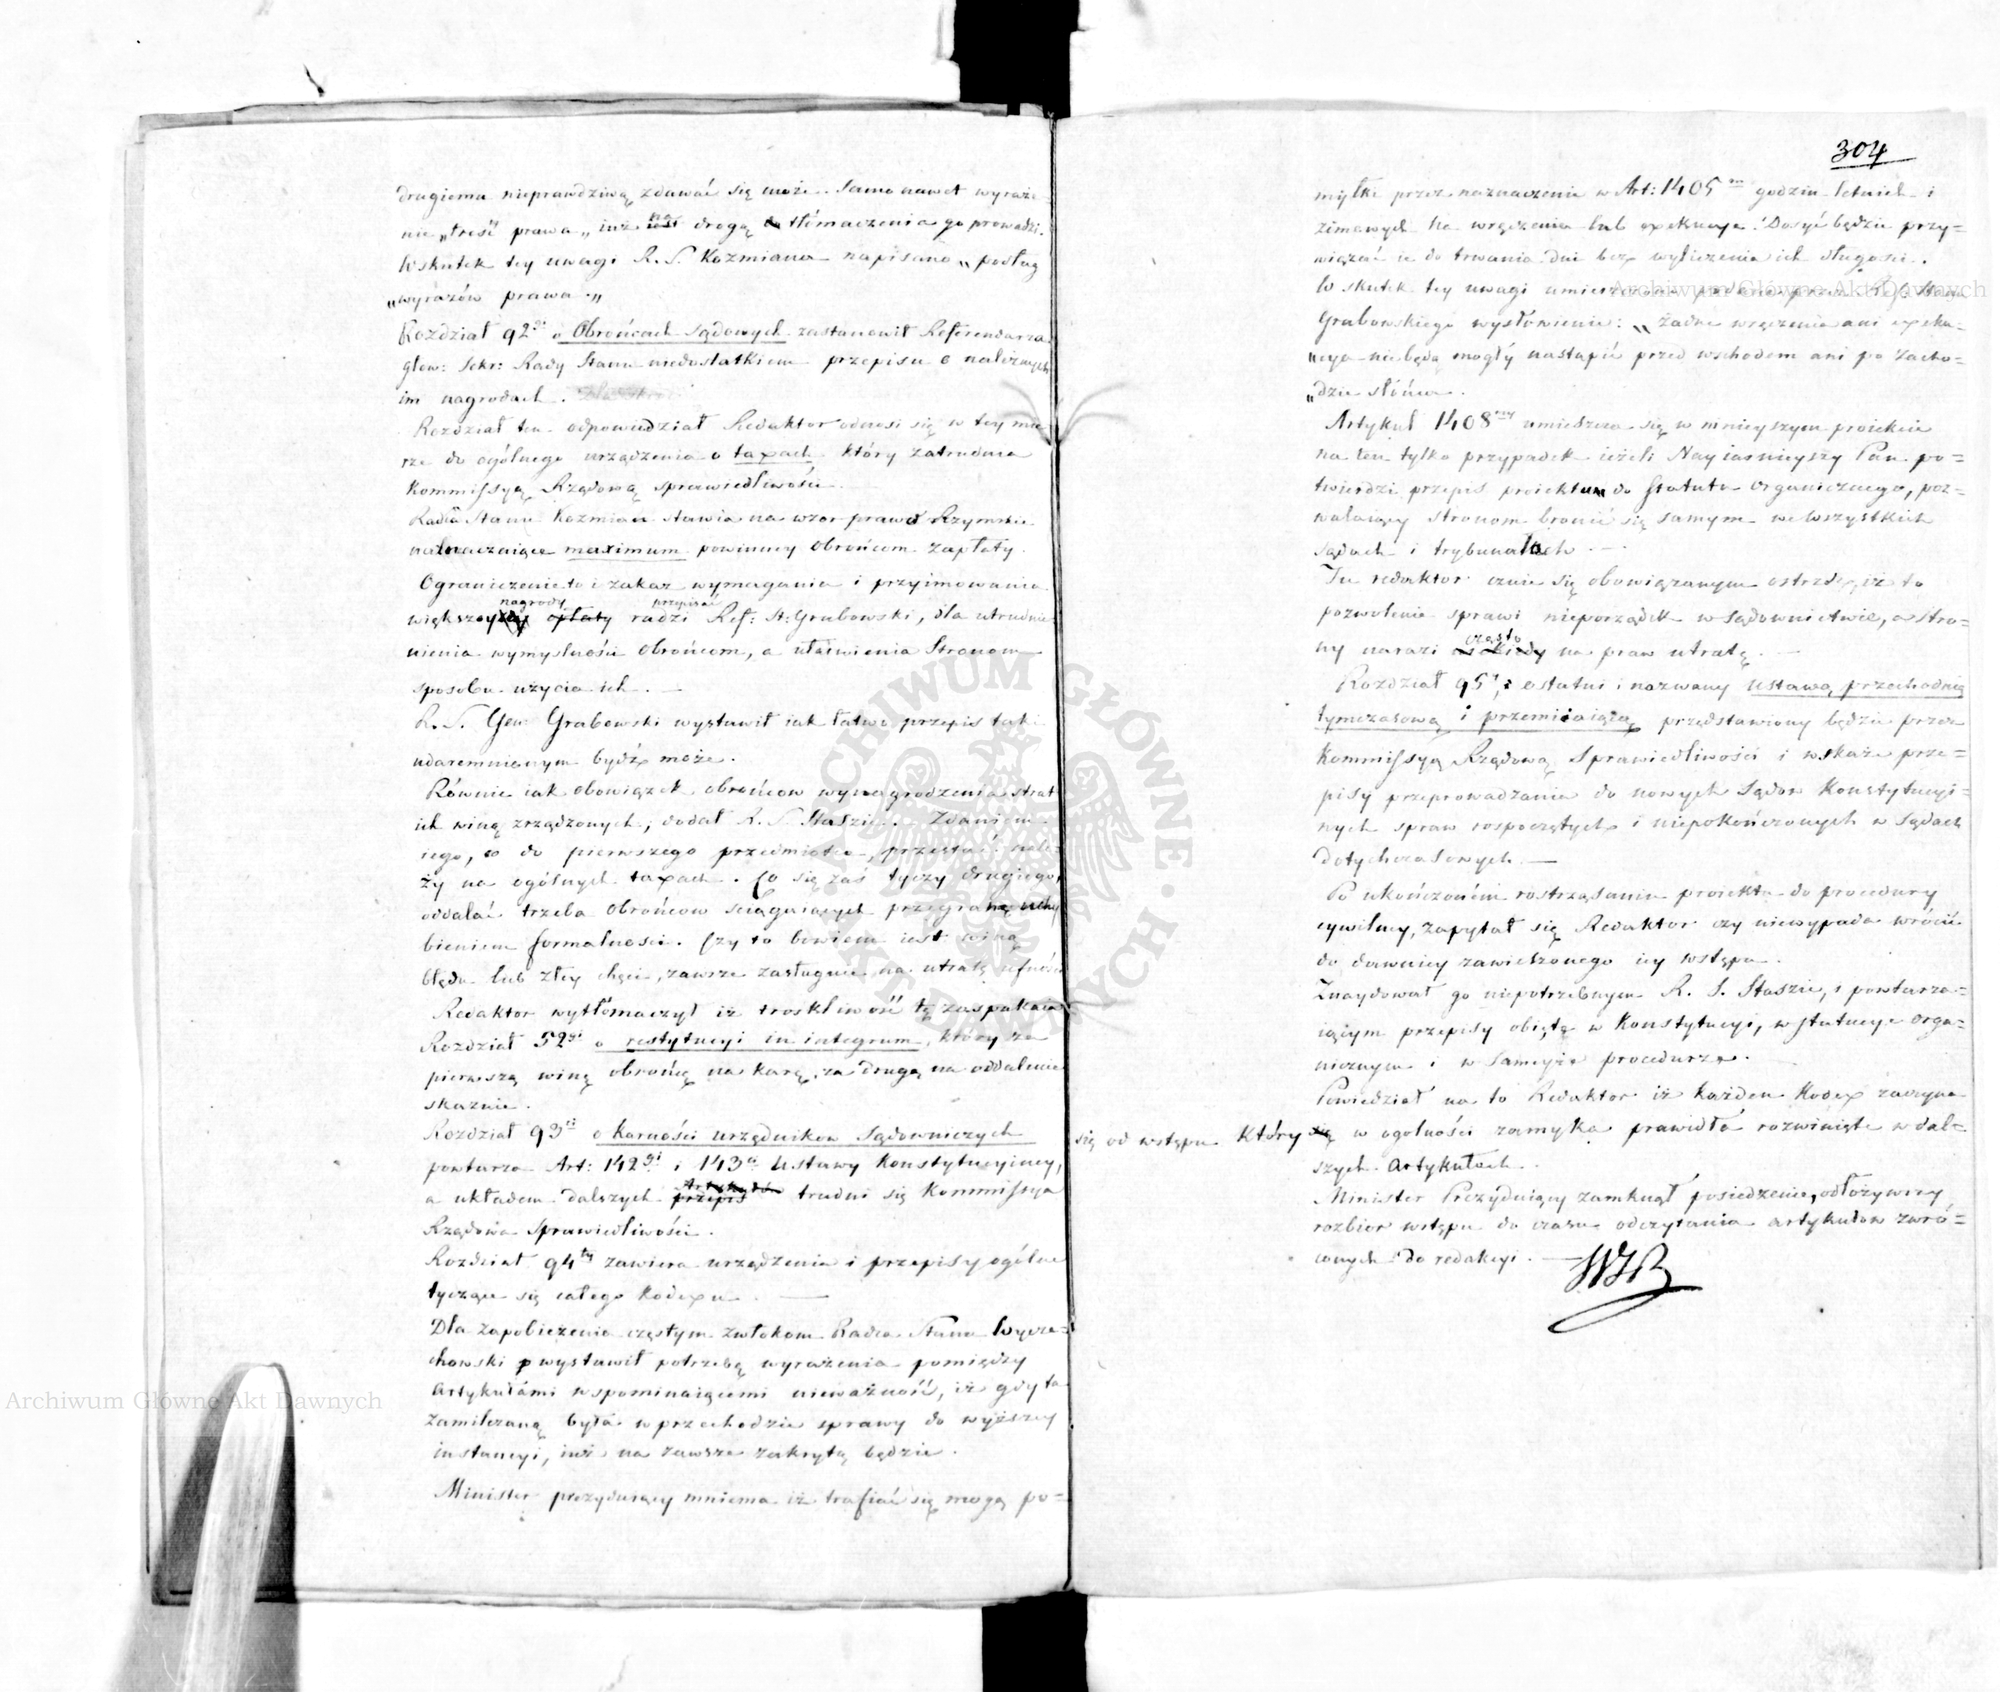 drugiemu nieprawdziwą zdawać się może. Samo nawet wyraże-
nie „treść prawa„ iuż na drogę tłómaczenia go prowadzi.
Wskutek tey uwagi R. S. Kozmiana napisano „podług
„wyrazów prawa.„
Rozdział 92gi o Obrońcach Sądowych zastanowił Referendarza
głów: Sekr: Rady Stanu niedostatkiem przepisu o należnych
im nagrodach.
Rozdział ten odpowiedział Redaktor odnosi się w tey mie
rze do ogólnego urządzenia o taxach który zatrudnia
Kommissyą Rządową Sprawiedliwości
Radca Stanu Kozmian stawia na wzor prawo Rzymskie
naznaczaiące maximum powinney obrońcom zapłaty.
Ograniczenie to i zakaz wymagania i przyimowania
nagrody przepisać
większey opłaty radzi Ref: St: Grabowski, dla utrudnie
nienia wymyslności obrońcom, a ułatwienia Stronom
sposobu użycia ich. —
R. S. Gen: Grabowski wystawił iak łatwo przepis taki
udaremnionym bydź może.
Równie iak obowiązek obrońcow wynagrodzenia strat
ich winą zrządzonych; dodał R. S. Staszic. Zdaniem
iego, co do pierwszego przedmiotu, przestać nale-
ży na ogólnych taxach. Co się zaś tyczy drugiego,
oddalać trzeba obrońcow sciągaiących przegraną uchy
bieniem formalności. Czy to bowiem iest winą
błędu lub złey chęci, zawsze zasługuie na utratę ufności
Redaktor wytłómaczył iż troskliwość tę zaspakaia
Rozdział 52gi o restytucyi in integrum, który za
pierwszą winę obrońcę na karę, za drugą na oddalenie
skazuie.
Rozdział 93ci o karności urzędnikow Sądowniczych
powtarza Art: 142gi i 143ci Ustawy Konstytucyiney,
Artykułów
a układem dalszych przepis trudni się Kommissya
Rządowa Sprawiedliwości.
Rozdział 94ty zawiera urządzenia i przepisy ogólne
tyczące się całego Kodexu. —
Dla zapobieżenia częstym zwłokom Radca Stanu Wycze-
chowski wystawił potrzebę wyrażenia pomiędzy
Artykułami wspominaiącemi nieważność, iż gdy ta
zamilczaną była w przechodzie sprawy do wyższey
instancyi, iuż na zawsze zakrytą będzie.
Minister prezyduiący mniema iż trafiać się mogą po-
304
myłki przez naznaczenie w Art: 1405m godzin letnich i
zimowych do wręczenia lub exekucyi. Dosyć będzie przy-
wiązać ie do trwania dni bez wyliczenia ich długości.
W skutek tey uwagi umieszczono podane przez Ref: Stanu
Grabowskiego wysłowienie: „żadne wręczenia ani exeku-
„cya nie będą mogły nastąpić przed wschodem ani po zacho-
„dzie słońca.
Artykuł 1408my umieszcza się w ninieyszym proiekcie
na ten tylko przypadek ieżeli Nayiaśnieyszy Pan po-
twierdzi przepis proiektu do Statutu organicznego, poz-
walaiący stronom bronić się samym we wszystkich
Sądach i trybunałach. —
Tu redaktor czuie się obowiązanym ostrzedz, iż to
pozwolenie sprawi nieporządek w Sądownictwie, a stro-
często
ny narazi na praw utratę. —
Rozdział 95ty ostatni i nazwany Ustawą przechodnią
tymczasową i przemiiaiącą przedstawiony będzie przez
Kommissyą Rządową Sprawiedliwości i wskaże prze-
pisy przeprowadzania do nowych Sądow Konstytucyi-
nych spraw rospoczętych i niepokończonych w Sądach
dotychczasowych. —
Po ukończoném rostrząsaniu proiektu do procedury
cywilney, zapytał się Redaktor czy niewypada wrócić
do dawniey zawieszonego iey wstępu.
Znaydował go niepotrzebnym R. S. Staszic, i powtarza-
iącym przepisy obięte w Konstytucyi, w Statucie orga-
nicznym i w Sameyże procedurze.
Powiedział na to Redaktor iż każden Kodex zaczyna
się od wstępu który w ogolności zamyka prawidła rozwinięte w dal-
szych Artykułach.
Minister Prezyduiący zamknął posiedzenie, odłożywszy
rozbior wstępu do czasu odczytania artykułow zwró-
conych do redakcyi. —
Archiwum Główne Akt Dawnych
Archiwum Główne Akt Dawnych
ARCHIWUM GŁÓWNE AKT DAWNYCH